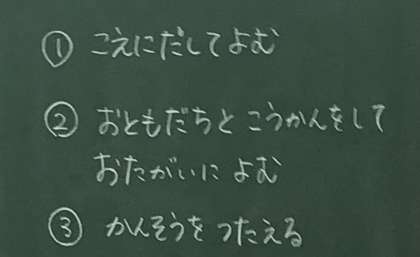 ① こえにだしてよむ
② おともだちと こうかんをして
おたがいに よむ
③ かんそうを つたえる